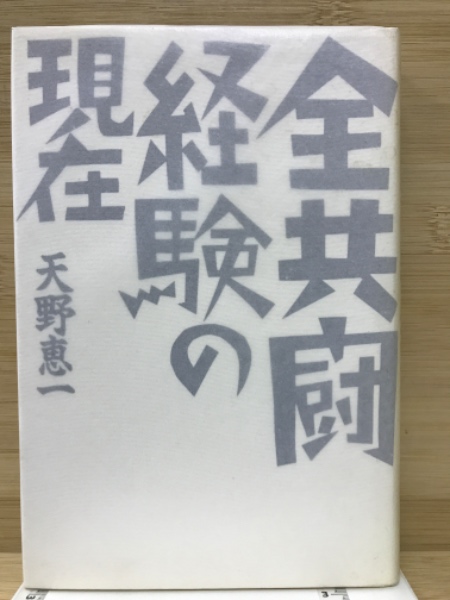 全共闘
経験の
現在
天野恵一